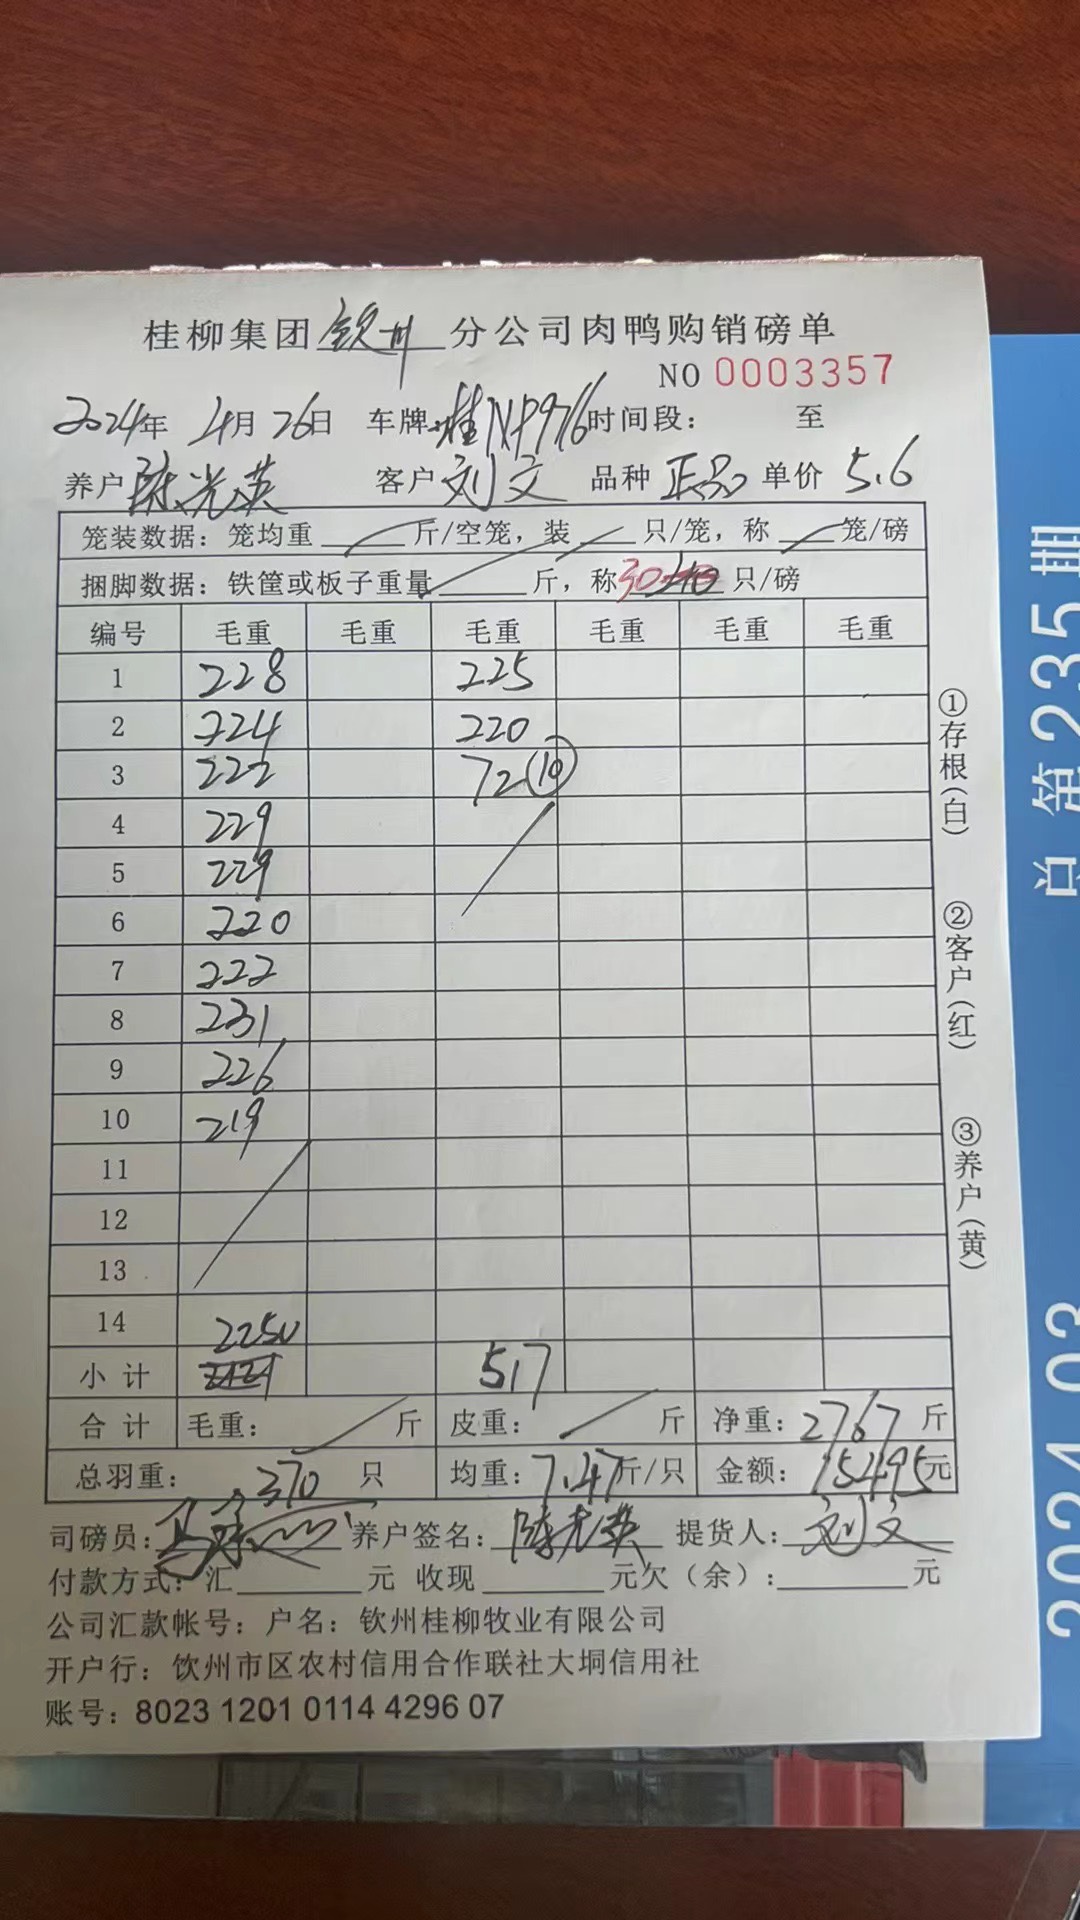 桂柳集团钦州分公司肉鸭购销磅单
NO 0003357
2024年 4月 26日 车牌:桂NP976 时间段: 至
养户 陈光英 客户 刘文 品种 正品 单价 5.6
笼装数据: 笼均重 斤/空笼, 装 只/笼, 称 笼/磅
捆脚数据: 铁筐或板子重量 斤, 称 30 只/磅
编号 毛重 毛重 毛重 毛重 毛重 毛重
1 228 225
2 224 220
3 222 72 (10)
4 229
5 229
6 220
7 222
8 231
9 226
10 219
11
12
13
14 2250
小计 517
合计 毛重: 斤 皮重: 斤 净重: 2767 斤
总羽重: 370 只 均重: 7.47 斤/只 金额: 15495 元
司磅员: 养户签名: 陈光英 提货人: 刘文
付款方式: 汇 元 收现 元欠(余): 元
公司汇款帐号: 户名: 钦州桂柳牧业有限公司
开户行: 钦州市区农村信用合作联社大垌信用社
账号: 8023 1201 0114 4296 07
①存根(白) ②客户(红) ③养户(黄)
总第235期
2024 03